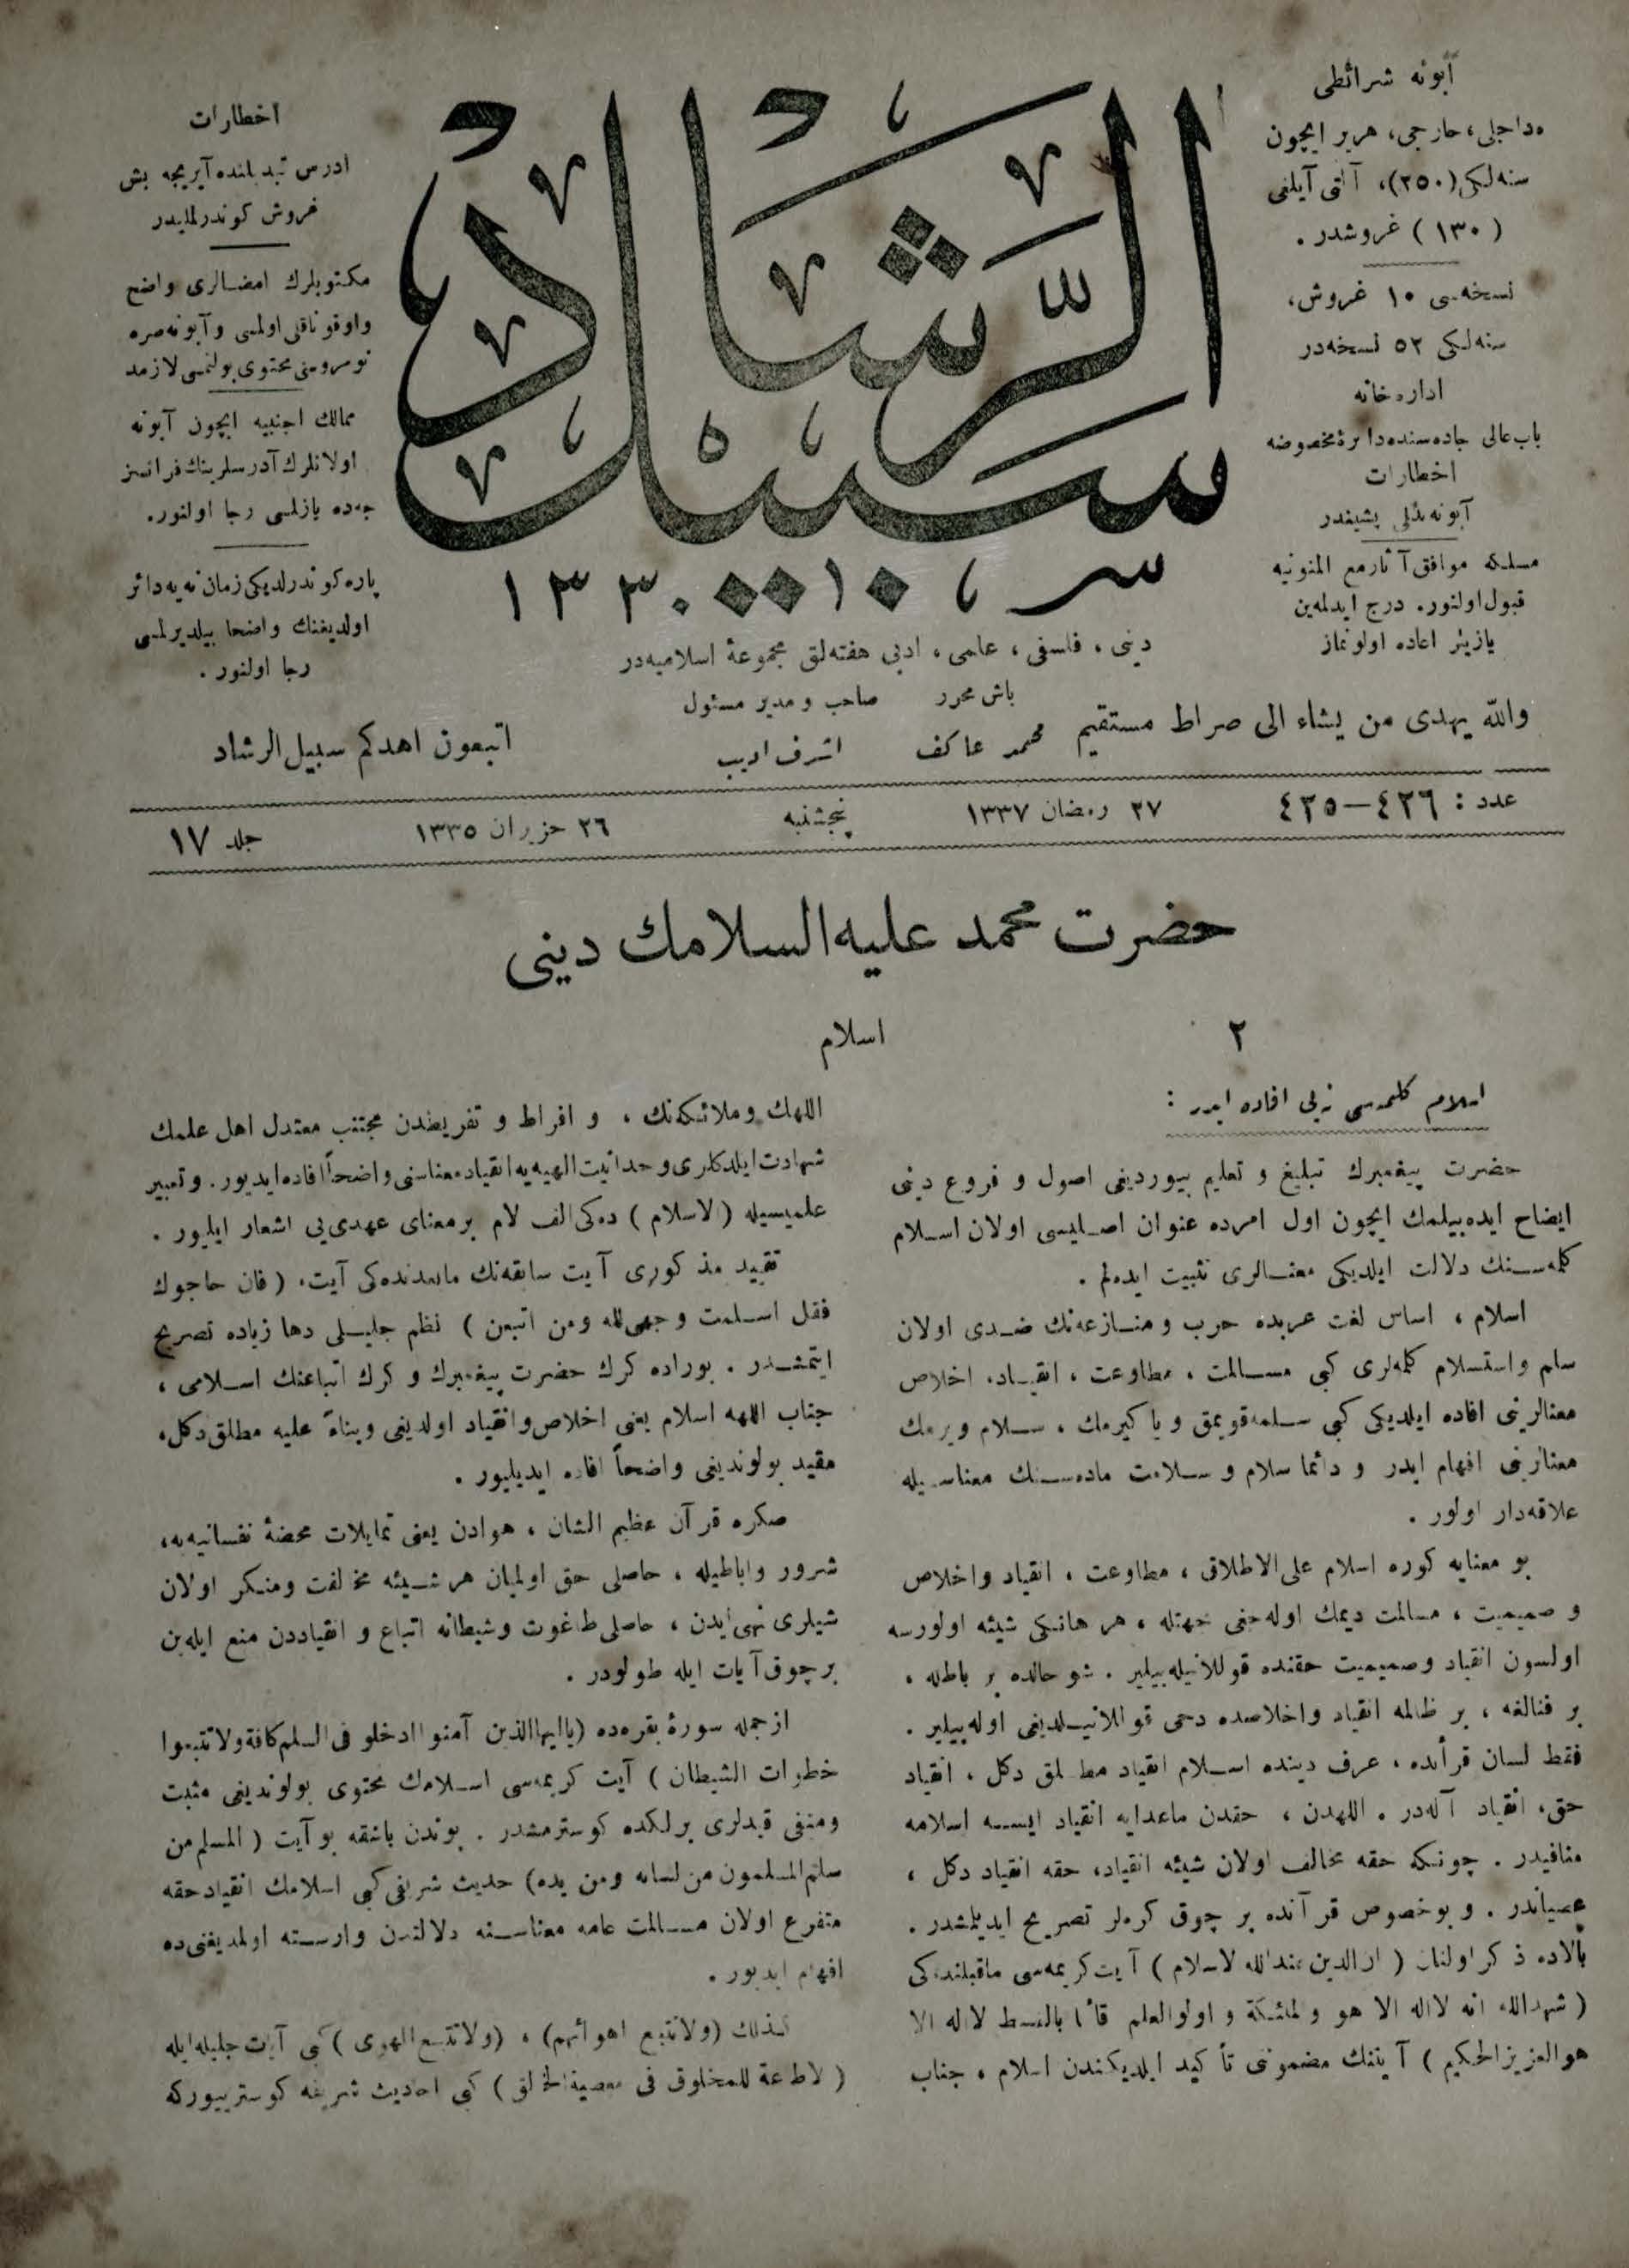 آبونه شرائطی
داخلی، خارجی، هر یر ایچون
سنه‌لكی (٢٥٠)، آلتی آیلغی
( ١٣٠ ) غروشدر .
نسخه‌سی ١٠ غروش،
سنه‌لكی ٥٢ نسخه‌در
اداره‌خانه
باب عالی جاده‌سنده دائرۀ مخصوصه
اخطارات
آبونه بدلی پشیندر
مسلكه موافق آثار مع الممنونیه
قبول اولنور. درج ایدلمه‌ین
یازیلر اعاده اولونماز
سبیل الرشاد
سر ١٠ ١٣٣٠
دینی ، فلسفی ، علمی ، ادبی هفته‌لق مجموعۀ اسلامیه‌در
باش محرر
محمد عاكف
صاحب و مدیر مسئول
اشرف ادیب
اخطارات
آدرس تبدیلنده آیریجه بش
غروش كوندرلملیدر
مكتوبلرك امضالری واضح
و اوقوناقلی اولمسی و آبونه صره
نومروسنی محتوی بولنمسی لازمدر
ممالك اجنبیه ایچون آبونه
اولانلرك آدرسلرینك فرانسز
جه‌ده یازلمسی رجا اولنور.
پاره كوندرلدیكی زمان نه‌یه دائر
اولدیغنك واضحا بیلدیرلمسی
رجا اولنور .
والله یهدی من یشاء الی صراط مستقیم
اتبعون اهدكم سبیل الرشاد
عدد : ٤٢٦—٤٢٥
٢٧ رمضان ١٣٣٧
پنجشنبه
٢٦ حزیران ١٣٣٥
جلد ١٧
حضرت محمد علیه السلامك دینی
٢
اسلام
اسلام كلمه‌سی نه‌یی افاده ایدر :
حضرت پیغمبرك تبلیغ و تعلیم بیوردیغی اصول و فروع دینی
ایضاح ایده‌بیلمك ایچون اول امرده عنوان اصلیسی اولان اسلام
كلمه‌سنك دلالت ایلدیكی معنالری تثبیت ایده‌لم .
اسلام ، اساس لغت عربده حرب و منازعه‌نك ضدی اولان
سلم و استسلام كلمه‌لری كبی مسالمت ، مطاوعت ، انقیاد، اخلاص
معنالرینی افاده ایلدیكی كبی سلمه قویمق ویا كیرمك ، سلام ویرمك
معنالرینی افهام ایدر و دائما سلام و سلامت ماده‌سنك معناسیله
علاقه‌دار اولور .
بو معنایه كوره اسلام علی الاطلاق ، مطاوعت ، انقیاد و اخلاص
و صمیمیت ، مسالمت دیمك اوله‌جغی جهتله ، هر هانكی شیئه اولورسه
اولسون انقیاد و صمیمیت حقنده قوللانیله‌بیلیر . شو حالده بر باطله ،
بر فنالغه ، بر ظالمه انقیاد و اخلاصده دخی قوللانیلدیغی اوله‌بیلیر .
فقط لسان قرأنده ، عرف دینده اسلام انقیاد مطلق دكل ، انقیاد
حق، انقیاد آلٓهدر . اللهدن ، حقدن ماعدایه انقیاد ایسه اسلامه
منافیدر . چونكه حقه مخالف اولان شیئه انقیاد، حقه انقیاد دكل ،
عصیاندر . و بو خصوص قرآنده بر چوق كره‌لر تصریح ایدیلمشدر .
بالاده ذكر اولنان ( ان الدین عندالله الاسلام ) آیت كریمه‌سی ماقبلنده‌كی
( شهدالله انه لااله الا هو والملئكة و اولوالعلم قائما بالقسط لااله الا
هو العزیز الحكیم ) آیتنك مضموننی تأكید ایلدیكندن اسلام ، جناب
اللهك و ملائكه‌نك ، و افراط و تفریطدن مجتنب معتدل اهل علمك
شهادت ایلدكلری وحدانیت الهیه‌یه انقیاد معناسنی واضحاً افاده ایدیور . و تعبیر
علمیسیله (الاسلام ) ده‌كی الف لام بر معنای عهدی‌یی اشعار ایلیور .
تقیید مذكوری آیت سابقه‌نك مابعدنده‌كی آیت، ( فان حاجوك
فقل اسلمت وجهی لله ومن اتبعن ) نظم جلیلی دها زیاده تصریح
ایتمشدر . بوراده كرك حضرت پیغمبرك و كرك اتباعنك اسلامی ،
جناب اللهه اسلام یعنی اخلاص و انقیاد اولدیغی و بناءً علیه مطلق دكل،
مقید بولوندیغی واضحاً افاده ایدیلیور .
صكره قرآن عظیم الشان ، هوادن یعنی تمایلات محضۀ نفسانیه‌یه،
شرور و اباطیله ، حاصلی حق اولمیان هر شیئه مخالفت و منكر اولان
شیلری نهی ایدن ، حاصلی طاغوت و شیطانه اتباع و انقیاددن منع ایله‌ین
بر چوق آیات ایله طولودر .
ازجمله سورۀ بقره‌ده (یا ایها الذین آمنوا ادخلو فی السلم كافة ولاتتبعوا
خطوات الشیطان ) آیت كریمه‌سی اسلامك محتوی بولوندیغی مثبت
و منفی قیدلری برلكده كوسترمشدر . بوندن باشقه بو آیت ( المسلم من
سلم المسلمون من لسانه ومن یده) حدیث شریفی كبی اسلامك انقیاد حقه
متفرع اولان مسالمت عامه معناسنه دلالتدن وارسته اولمدیغنی ده
افهام ایدیور .
كذلك (ولاتتبع اهوائهم) ، (ولاتتبع الهوی ) كبی آیات جلیله ایله
( لاطاعة للمخلوق فی معصیة الخالق ) كبی احادیث شریفه كوستریوركه